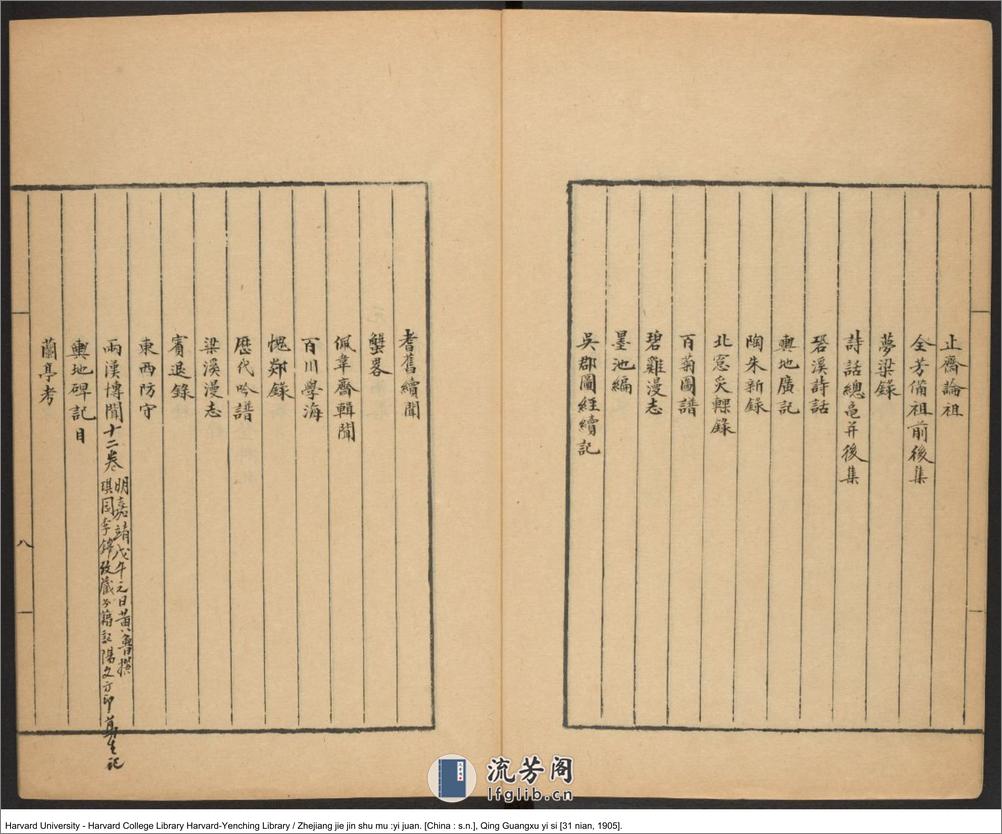 止齋論祖
全芳備祖前後集
夢梁錄
詩話總龜并後集
䂬溪詩話
輿地廣記
陶朱新錄
北窓炙輠錄
百菊圖譜
碧雞漫志
墨池編
吳郡圖經續記
耆舊續聞
蟹畧
佩韋齋輯聞
百川學海
愧郯錄
歴代吟譜
梁溪漫志
賓退錄
東西防守
兩漢博聞十二卷
明嘉靖戊午元日黃魯撰
琪同李錦改藏書籍記陽文方印
輿地碑記目
蘭亭考
八
流芳阁
lfglib.cn
Harvard University - Harvard College Library Harvard-Yenching Library / Zhejiang jie jin shu mu :yi juan. [China : s.n.], Qing Guangxu yi si [31 nian, 1905].